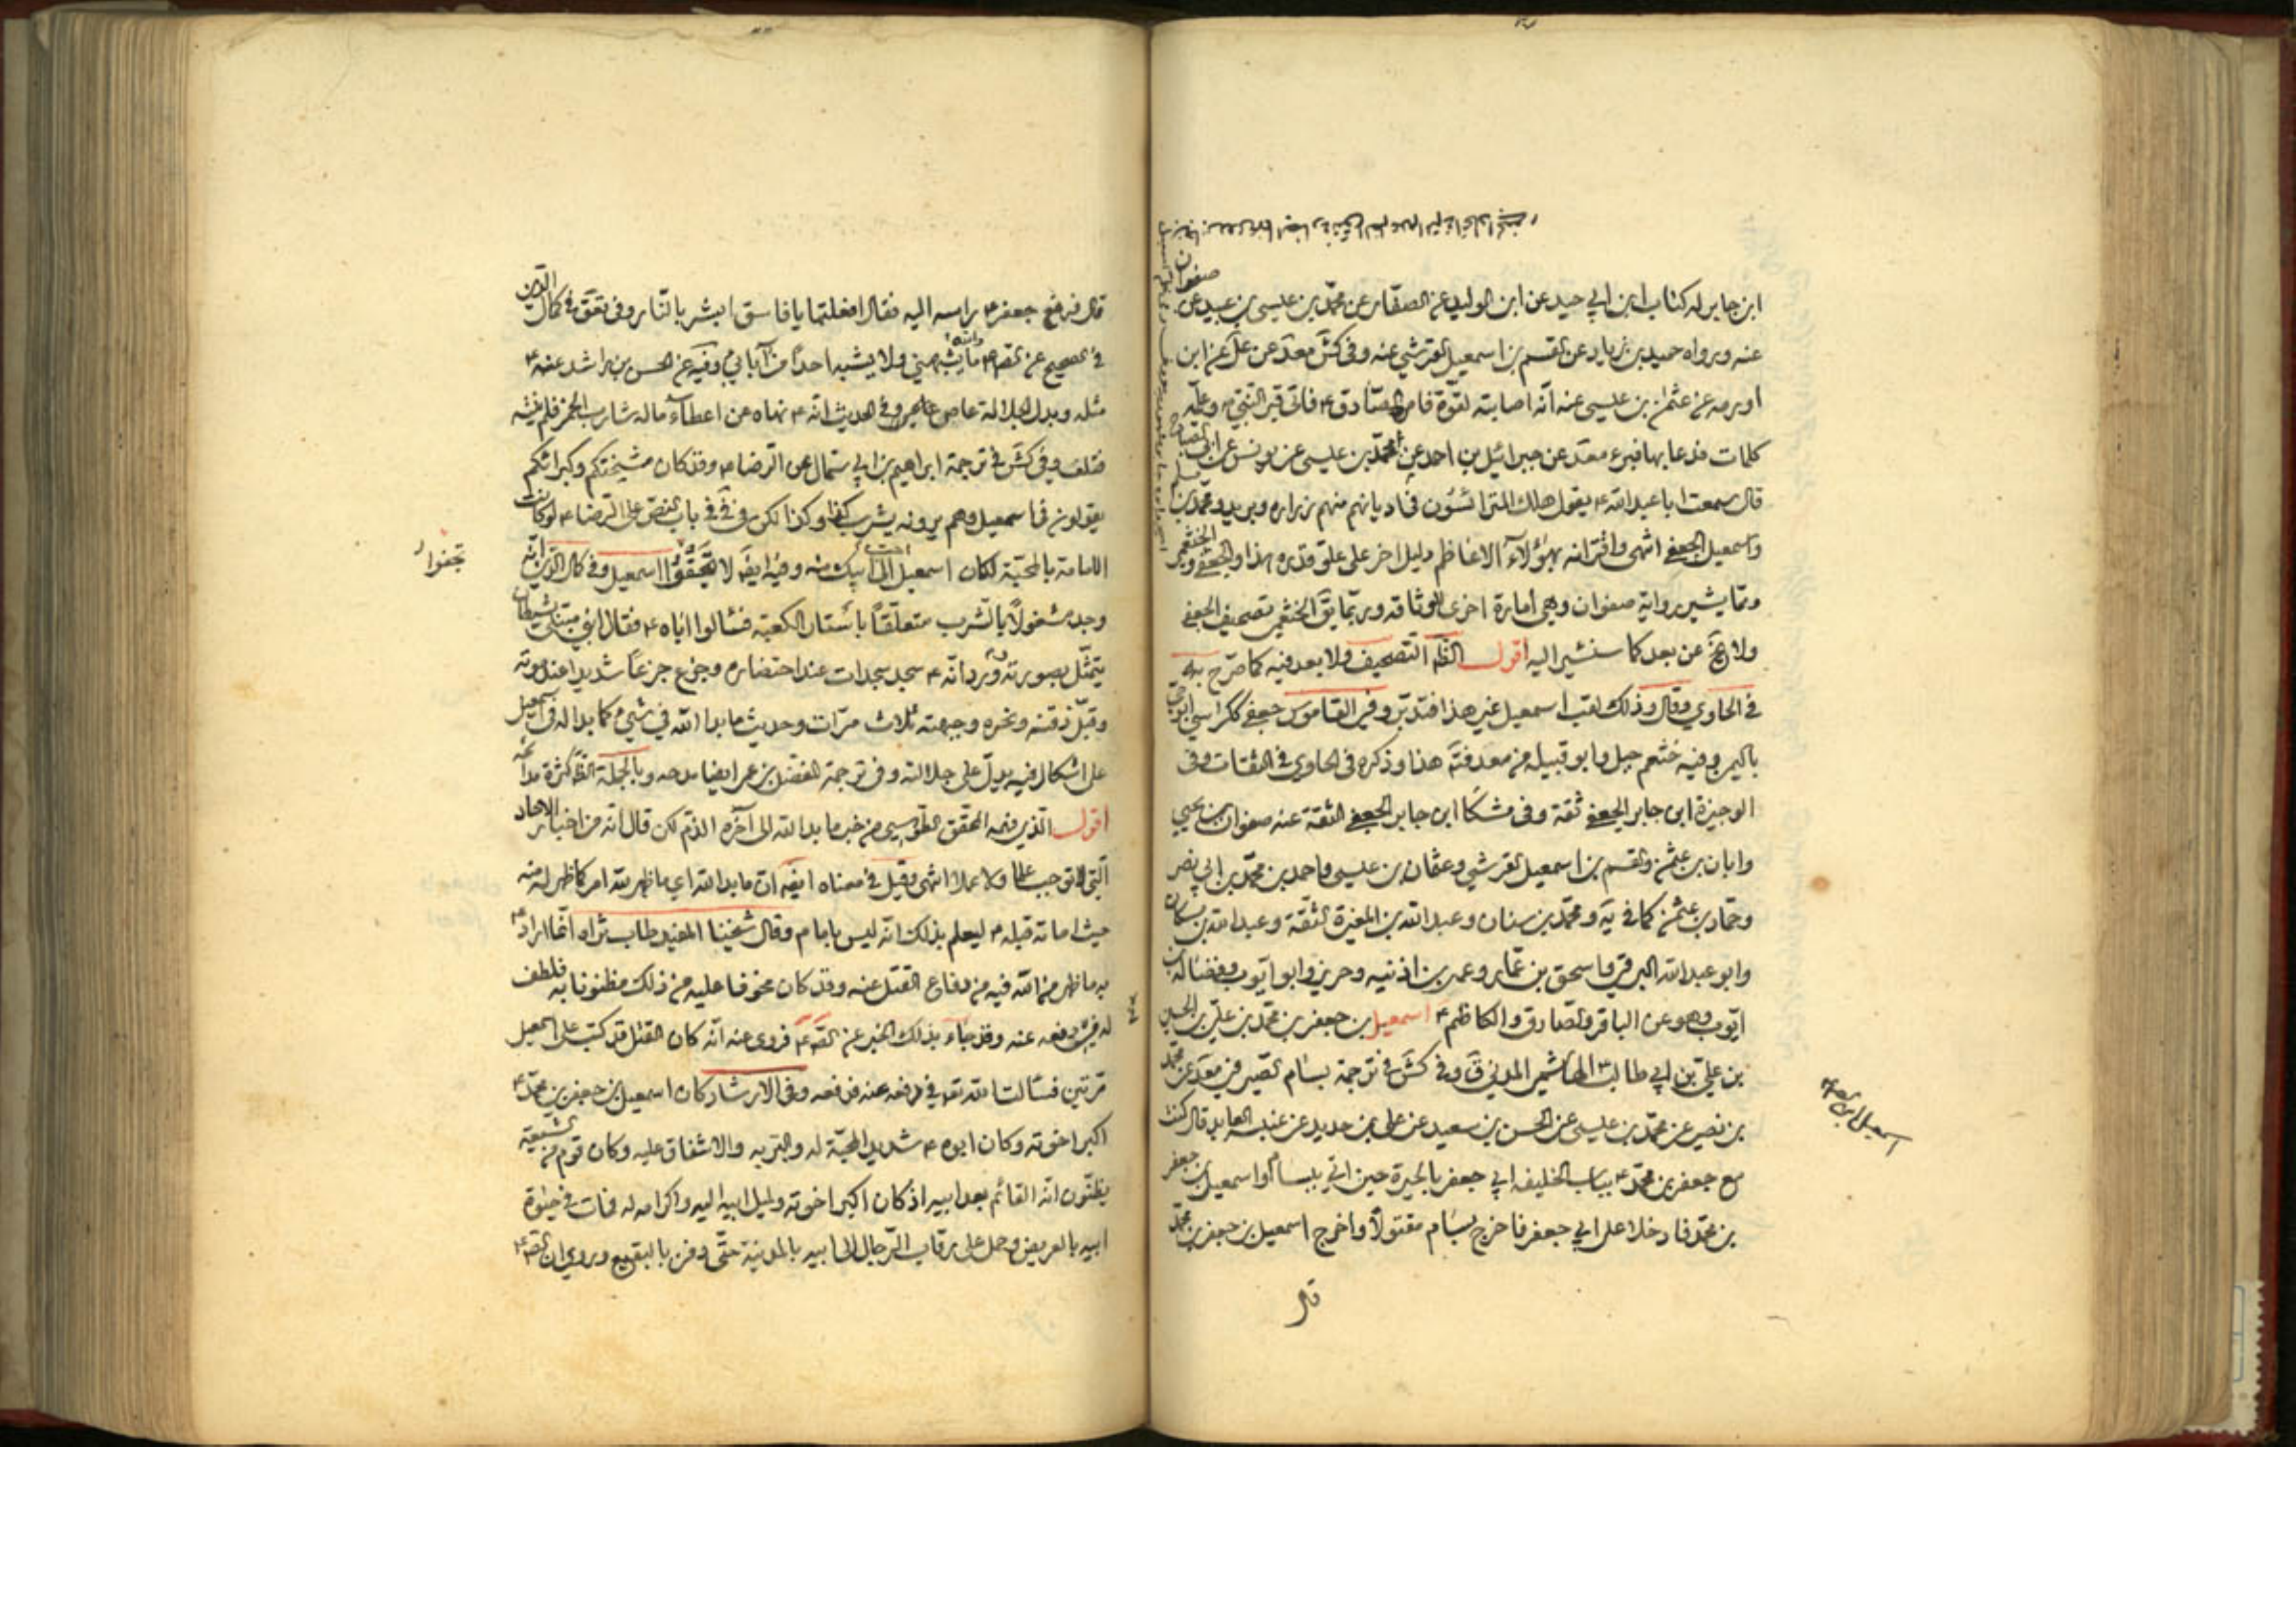 ابن جابر له كتاب ابن ابي جيد عن ابن الوليد عن الصفار عن محمد بن عيسى بن عبيد عن صفوان
عنه ورواه حميد بن زياد عن القسم بن اسمعيل القرشي عنه وفى كش معد عن على عن ابن
اورمه عن عثمن بن عيسى عنه انه اصابته لقوة فامره الصادق ٤ فاتى قبر النبى وعلمه
كلمات فدعا بها فبرء معد عن جبرائيل بن احمد عن محمد بن عيسى عن يونس عن ابى الصباح
قال سمعت ابا عبد الله ٤ يقول هلك المترائسون فى اديانهم منهم زراره وبريد ومحمد بن مسلم
واسمعيل الجعفى انتهى واقترانه بهؤلاء الاعاظم دليل اخر على علو قدره هذا والجعفى
ومما يشير رواية صفوان وهى امارة اخرى لوثاقته وربما يق الخثعمى تصحيف الجعفى
ولا يخ عن بعد كما سنشير اليه اقول الظ التصحيف ولا بعد فيه كما صرح به
فى الحاوي وقال وذلك لقب اسمعيل غير هذا فتدبر وفى القاموس جعفى ككرسي ابو حي
باليمن وفيه خثعم جبل وابو قبيله من معد فت هذا وذكره فى الحاوى فى الثقات وفى
الوجيزة ابن جابر الجعفى ثقة وفى مشكا ابن جابر الجعفى الثقة عنه صفوان بن يحيى
وابان بن عثمن والقسم بن اسمعيل القرشي وعثمان بن عيسى واحمد بن محمد بن ابي نصر
وحماد بن عثمن كما فى يه ومحمد بن سنان وعبد الله بن المغيرة الثقة وعبد الله بن مسكان
وابو عبد الله البرقى واسحق بن عمار وعمر بن اذنيه وحريز وابو ايوب وفضالة بن
ايوب وهو عن الباقر والصادق والكاظم ٤ اسمعيل بن جعفر بن محمد بن على بن الحسين
بن علي بن ابي طالب ٤ الهاشمى المدنى ق وفى كش فى ترجمة بسام الصيرفى معد عن محمد
بن نصير عن محمد بن عيسى عن الحسن بن سعيد عن على بن حديد عن عنبسه العابد قال كنت
مع جعفر بن محمد ٤ بباب الخليفه ابي جعفر بالحيرة حين اتي ببسام واسمعيل بن جعفر
بن محمد فادخلا على ابي جعفر فاخرج بسام مقتولا واخرج اسمعيل بن جعفر بن محمد
قال
قال فرفع جعفر ٤ راسه اليه فقال افعلتها يا فاسق ابشر بالنار وفى تعق فى كمال الدين
فى الصحيح عن الص ٤ والله ما يشبهني ولا يشبه احدا من آبائي وفيه عن الحسن بن راشد عنه ٤
مثله وبدل الجلالة عاص عاص وفى الحديث انه ٤ نهاه عن اعطاء ماله شارب الخمر فلم ينته
فتلف وفى كش فى ترجمة ابراهيم بن ابي سمال عن الرضا ٤ وقد كان مشيختكم وكبرائكم
يقولون فى اسمعيل وهم يرونه يشرب كذا وكذا لكن فى باب النص على الرضا ٤ لو كانت
الامامة بالمحبة لكان اسمعيل احب الى ابيك منه وفيه ايض لا تجفوا اسمعيل وفى كمال الدين انه
تجفوا
وجد مشغولا بالشرب متعلقا باستار الكعبة فسالوا اباه ٤ فقال ابنى مبتلى بشيطان
يتمثل بصورته وورد انه ٤ سجد سجدات عند احتضاره وجزع جزعا شديدا عند موته
وقبل ذقنه ونحره وجبهته ثلاث مرات وحديث ما بدا لله في شيء كما بدا له فى اسمعيل
على اشكال فيه يدل على جلالته وفى ترجمة المفضل بن عمر ايضا مدحه وبالجملة الظ كثرة مدائحه
اقول الذي فهمه المحقق الطوسي من خبر ما بدا لله الى آخره الذم لكن قال انه من اخبار الاحاد
التي لا توجب علما ولا عملا انتهى وقيل فى معناه ايض ان ما بدا لله اي ما ظهر لله امر كما ظهر له منه
حيث اماته قبله ٤ ليعلم بذلك انه ليس بامام وقال شيخنا المفيد طاب ثراه انما اراد ٤
به ما ظهر من الله فيه من دفاع القتل عنه وقد كان مخوفا عليه من ذلك مظنونا به فلطف
له فى دفعه عنه وقد جاء بذلك الخبر عن الص ٤ فروى عنه انه كان القتل قد كتب على اسمعيل
مرتين فسالت الله تعه في دفعه عنه فدفعه وفى الارشاد كان اسمعيل بن جعفر بن محمد ٤
اكبر اخوته وكان ابوه ٤ شديد المحبة له والبر به والاشفاق عليه وكان قوم من الشيعة
يظنون انه القائم بعد ابيه اذ كان اكبر اخوته ولميل ابيه اليه واكرامه له فمات فى حيوة
ابيه بالعريض وحمل على رقاب الرجال الى ابيه بالمدينة حتى دفن بالبقيع وروي ان الص ٤